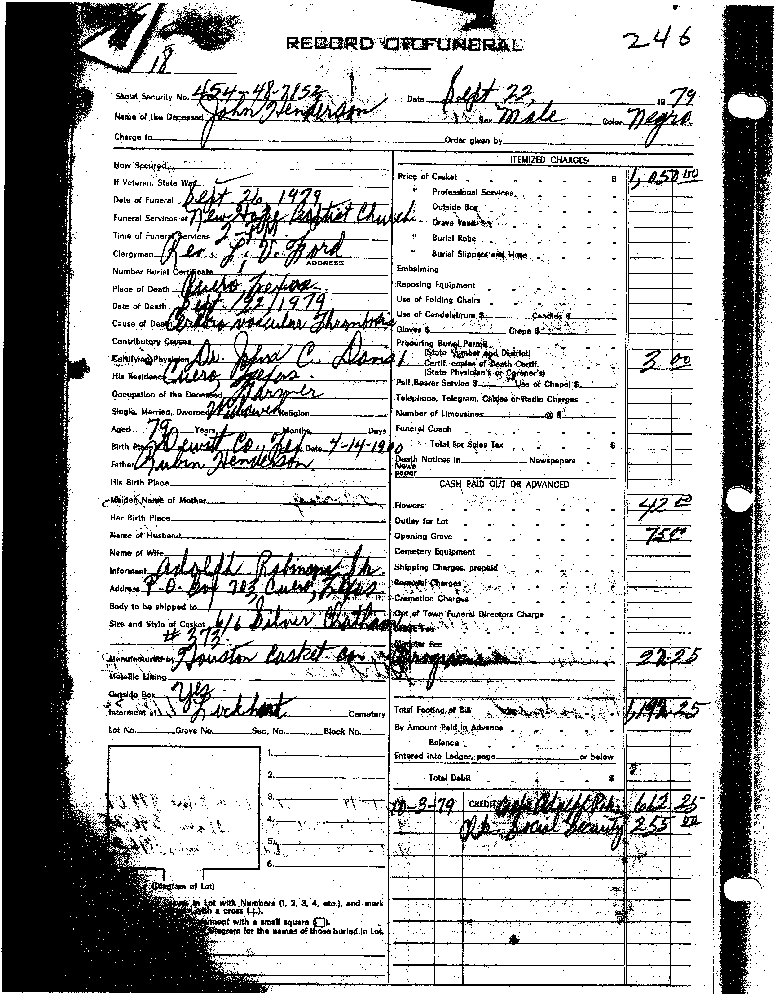 RECORD OF FUNERAL
246
18
Social Security No. 454-48-7152
Date Sept 22, 1979
Name of the Deceased John Henderson
Sex Male Color Negro
Charge to
Order given by
How Secured
If Veteran, State War
Date of Funeral Sept 26 1979
Funeral Services at New Hope Baptist Church
Time of Funeral Services 2 PM
Clergyman Rev. L. V. Ford
ADDRESS
Number Burial Certificate
Place of Death Cuero, Texas
Date of Death Sept. /22/1979
Cause of Death Cerebro vascular Thrombosis
Contributory Causes
Certifying Physician Dr. John C. Daniel
His Residence Cuero, Texas
Occupation of the Deceased
Single, Married, Divorced Widower Religion
Aged 79 Years Months Days
Birth Place Dewitt Co., Tex Date 4-14-1900
Father Rubin Henderson
His Birth Place
Maiden Name of Mother
Her Birth Place
Name of Husband
Name of Wife
Informant Adolph Robinson Jr.
Address P.O. Box 703, Cuero, Texas
Body to be shipped to
Size and Style of Casket 6/6 Silver Chatham
# 373
Manufactured by Houston Casket Co
Metallic Lining
Outside Box Yes
Interment at Lockhart Cemetery
Lot No. Grave No. Sec. No. Block No.
1.
2.
3.
4.
5.
6.
(Diagram of Lot)
in Lot with Numbers (1, 2, 3, 4, etc.), and mark
with a cross (+).
with a small square
Diagram for the names of those buried in Lot.
ITEMIZED CHARGES
Price of Casket $ 1,050 00
" Professional Services
" Outside Box
" Grave Vault
" Burial Robe
" Burial Slippers and Hose
Embalming
Reposing Equipment
Use of Folding Chairs
Use of Candelabrum $ Candles $
Gloves $ Crepe $
Procuring Burial Permit
(State Number and District)
Certif. copies of Death Certif. 3 00
(State Physician's or Coroner's)
Pall Bearer Service $ Use of Chapel $
Telephone, Telegram, Cables or Radio Charges
Number of Limousines @ $
Funeral Coach
Total for Sales Tax $
Death Notices in Newspapers
News
paper
CASH PAID OUT OR ADVANCED
Flowers 42 00
Outlay for Lot
Opening Grave 75 00
Cemetery Equipment
Shipping Charges, prepaid
Removal Charges
Cremation Charges
Out of Town Funeral Directors Charge
Programs 22.25
Total Footing of Bill 1,192.25
By Amount Paid in Advance
Balance
Entered into Ledger, page or below
Total Debit $
10-3-79 CREDIT 25
Social Security 255 00